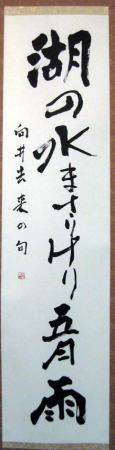 湖の水まさりけり五月雨
向井去来の句